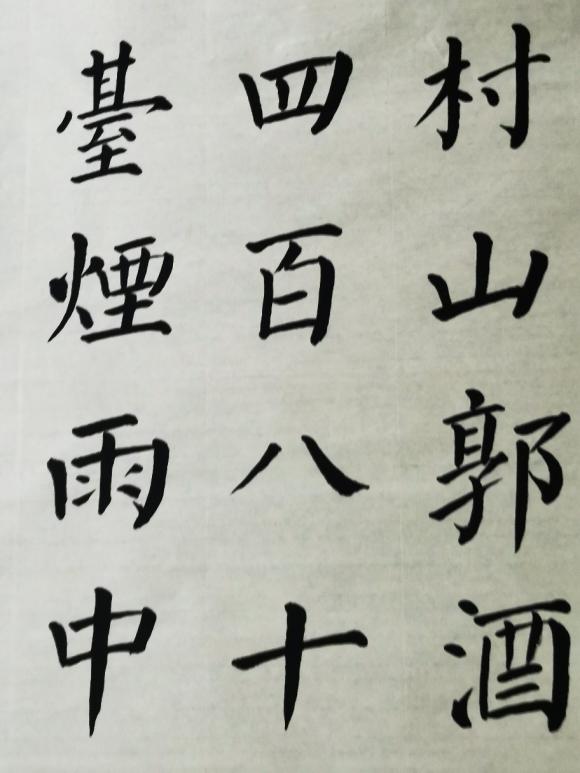 村山郭酒
四百八十
臺煙雨中